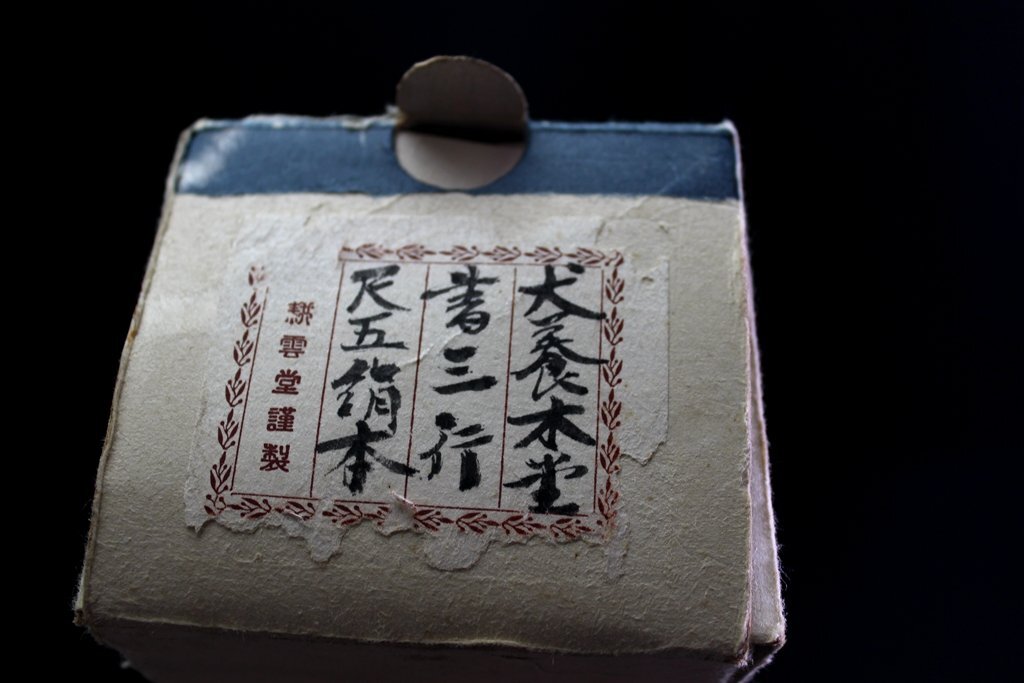 犬養木堂
書三行
尺五絹本
耕雲堂謹製